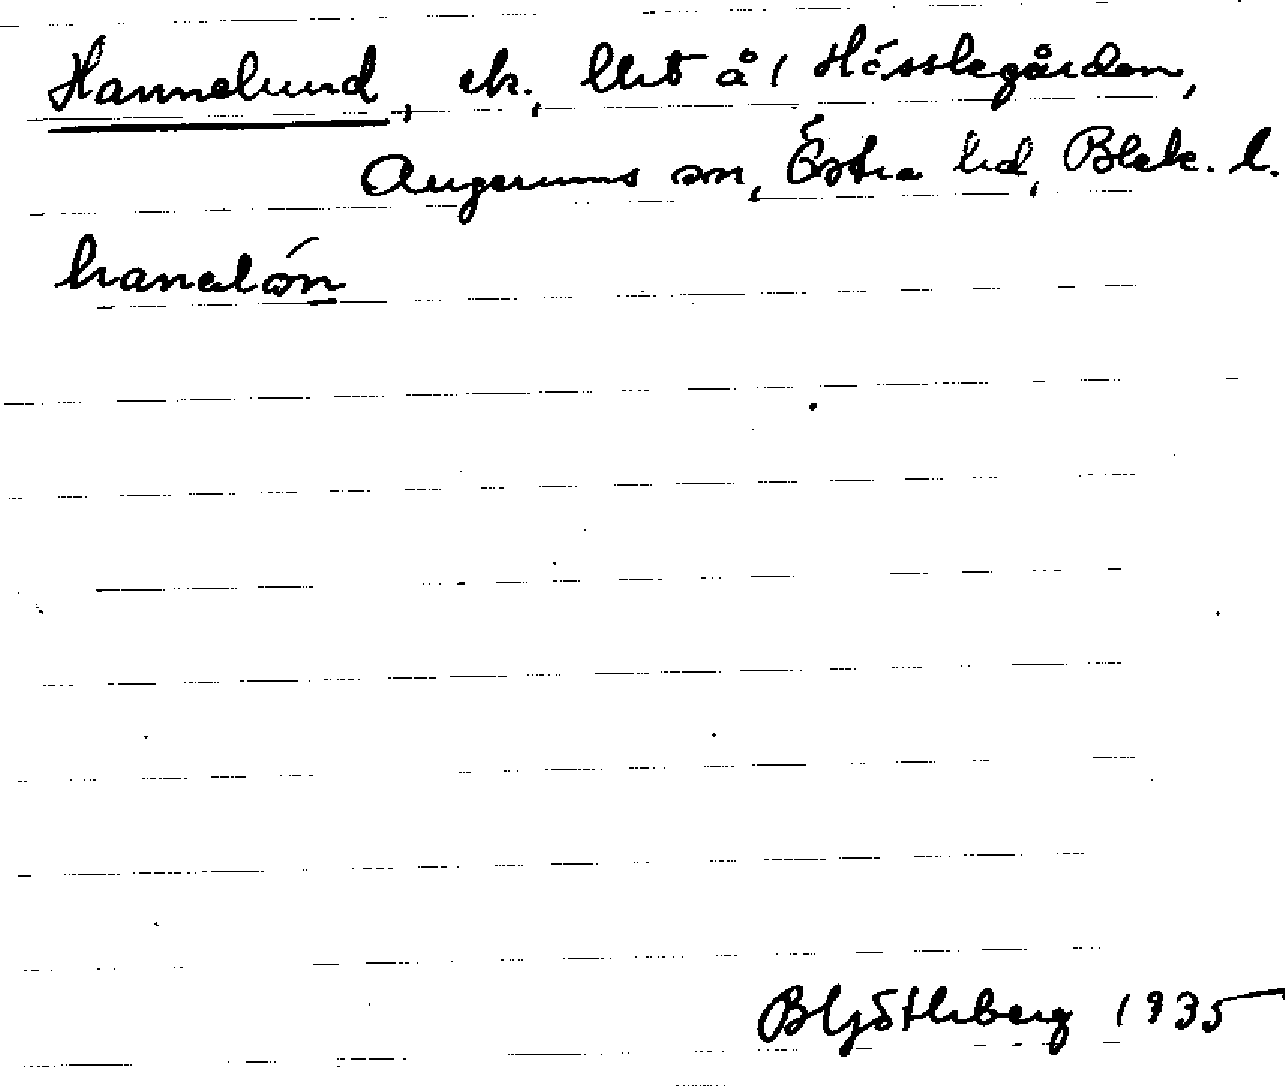 Hannelund, ek. lht å 1 Hässlegården,
Augerums sn, Östra hd, Blek. l.
B Ljötleberg 1935